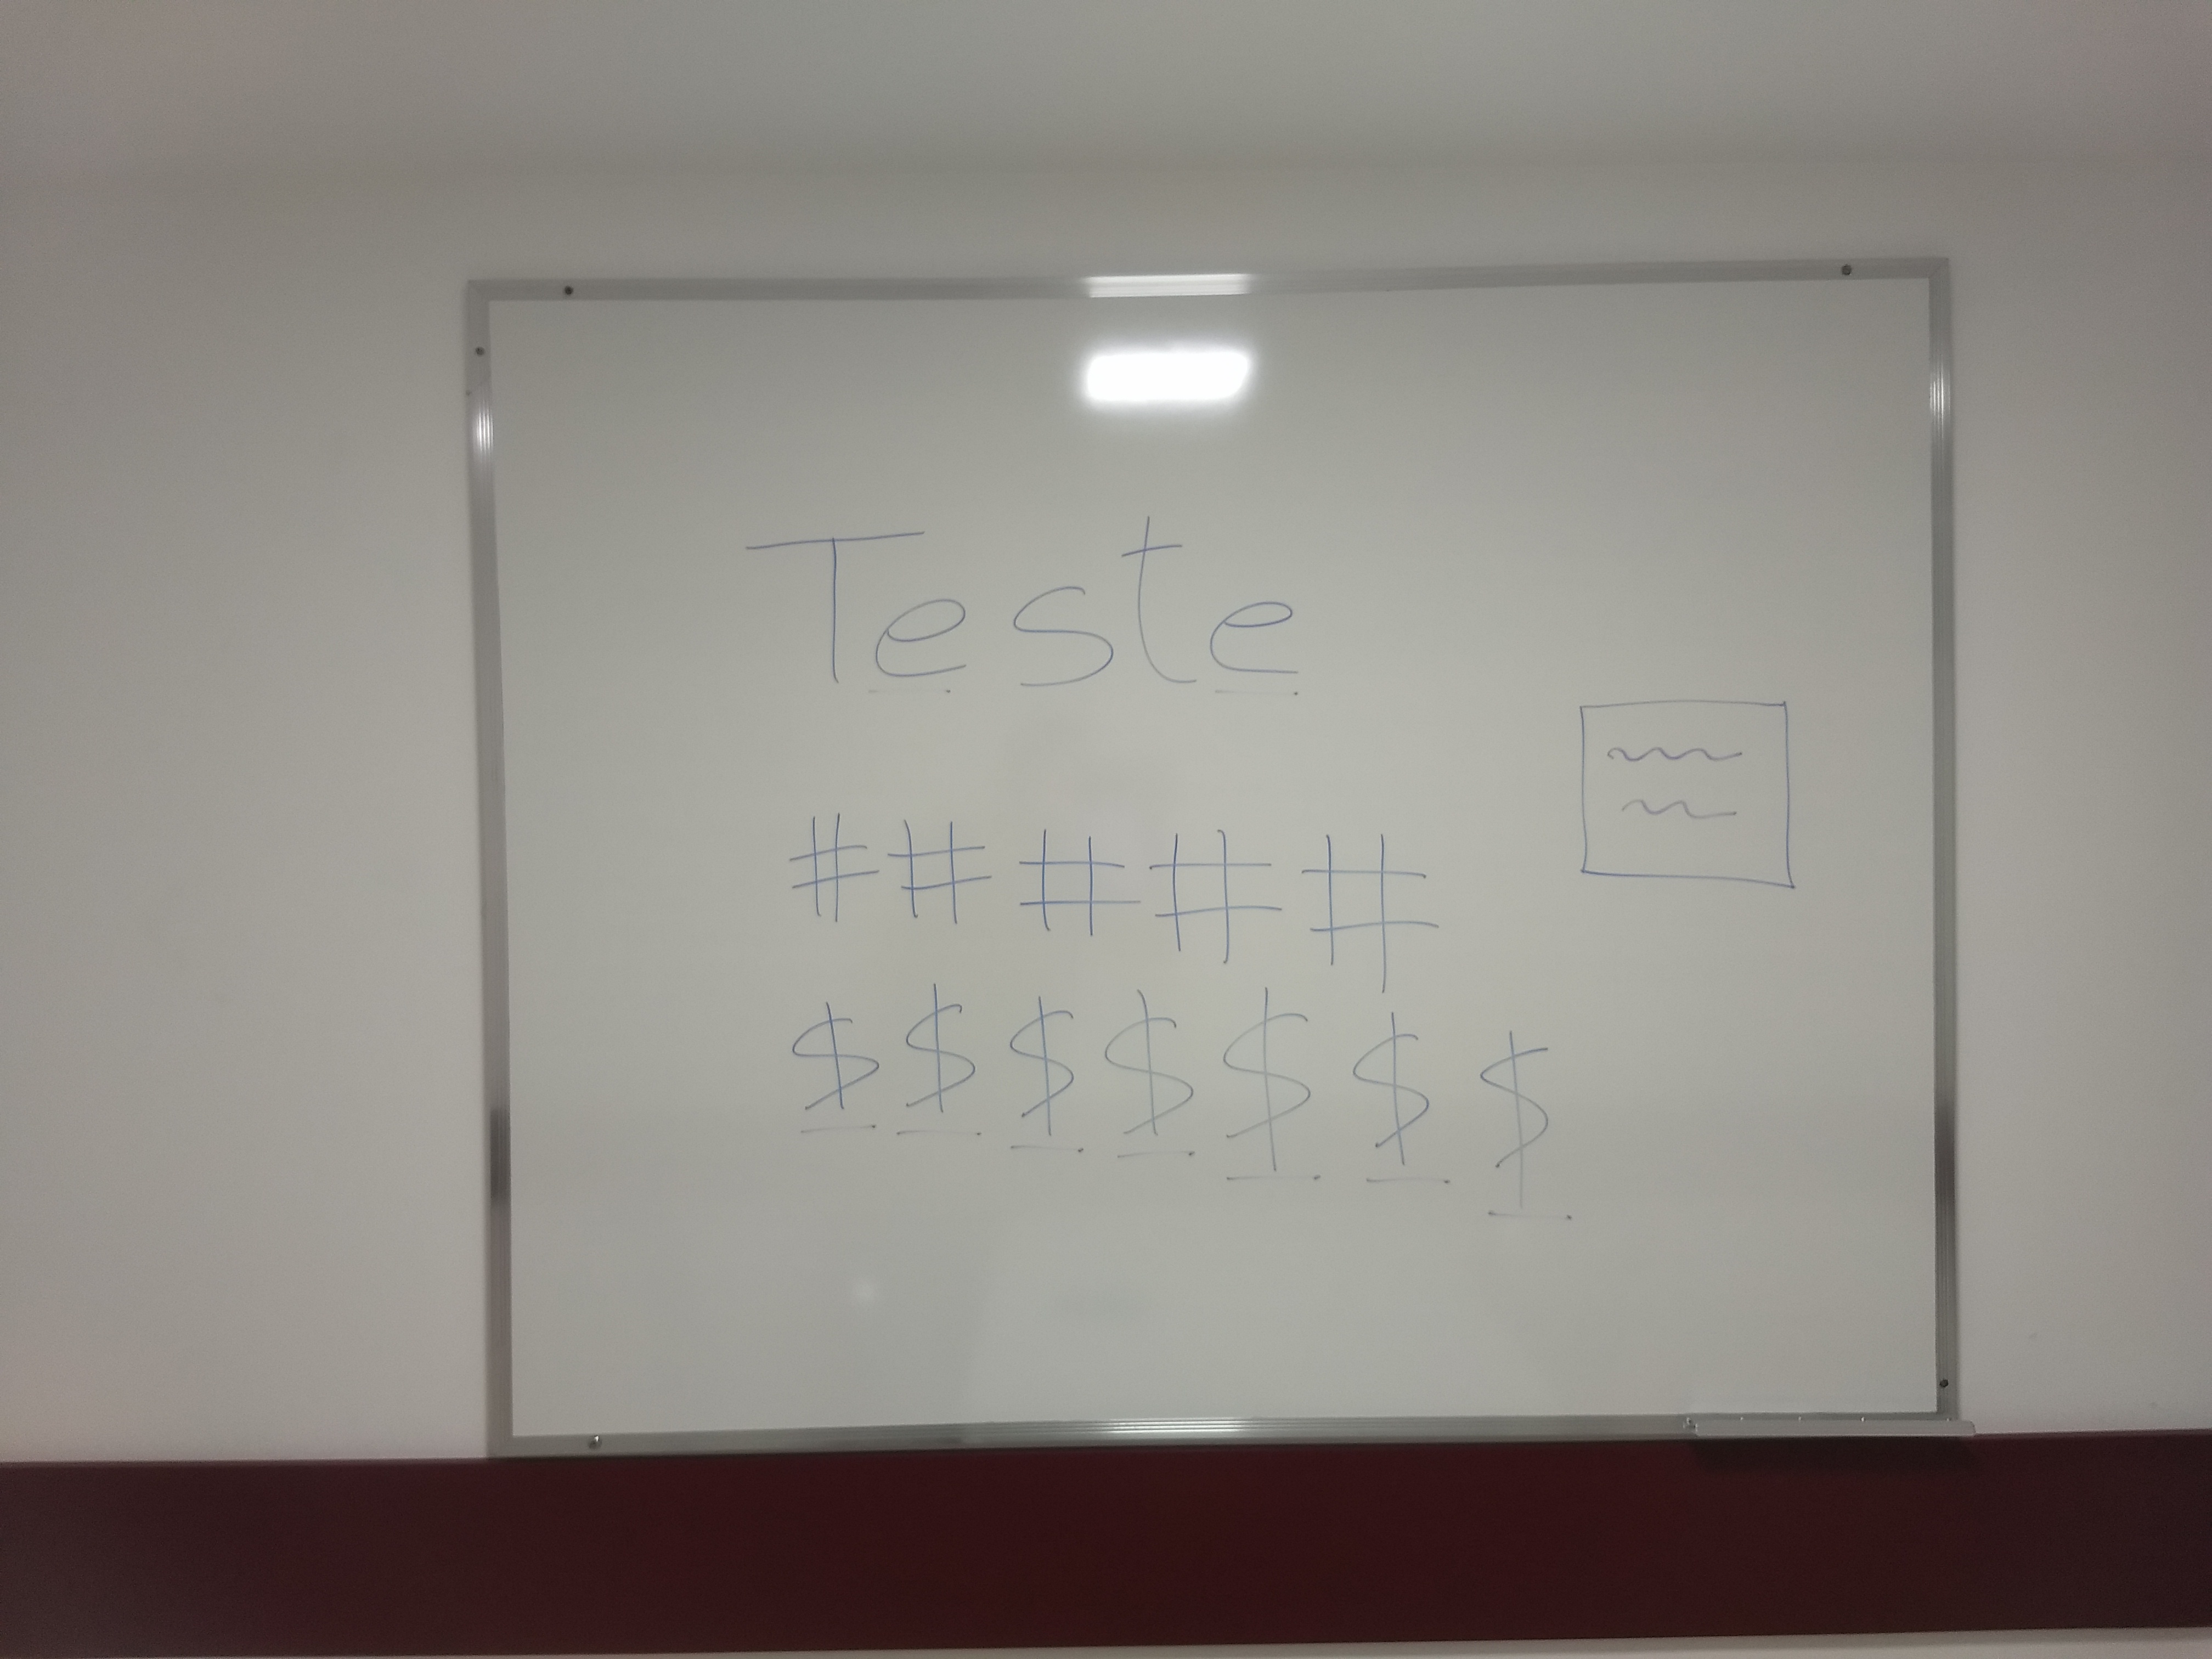 Teste
# # # # #
$ $ $ $ $ $ $